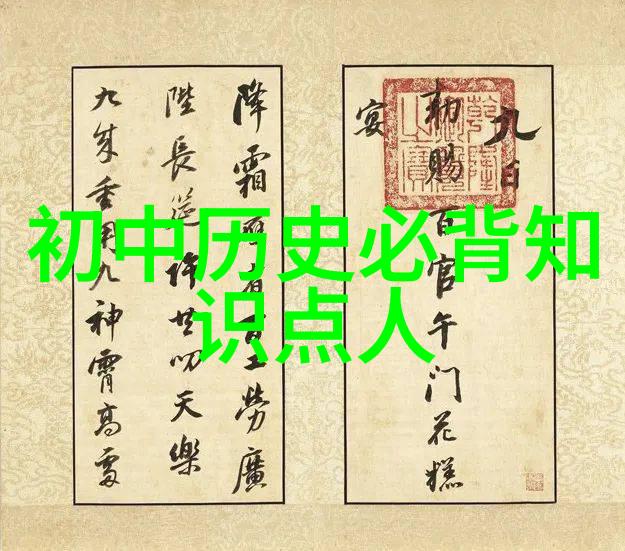 初中历史必背知
识点人
九日
勅賜百官午門花糕
宴
降霜勞廣
陛長筵許共叨天樂
九成重用九神霄高